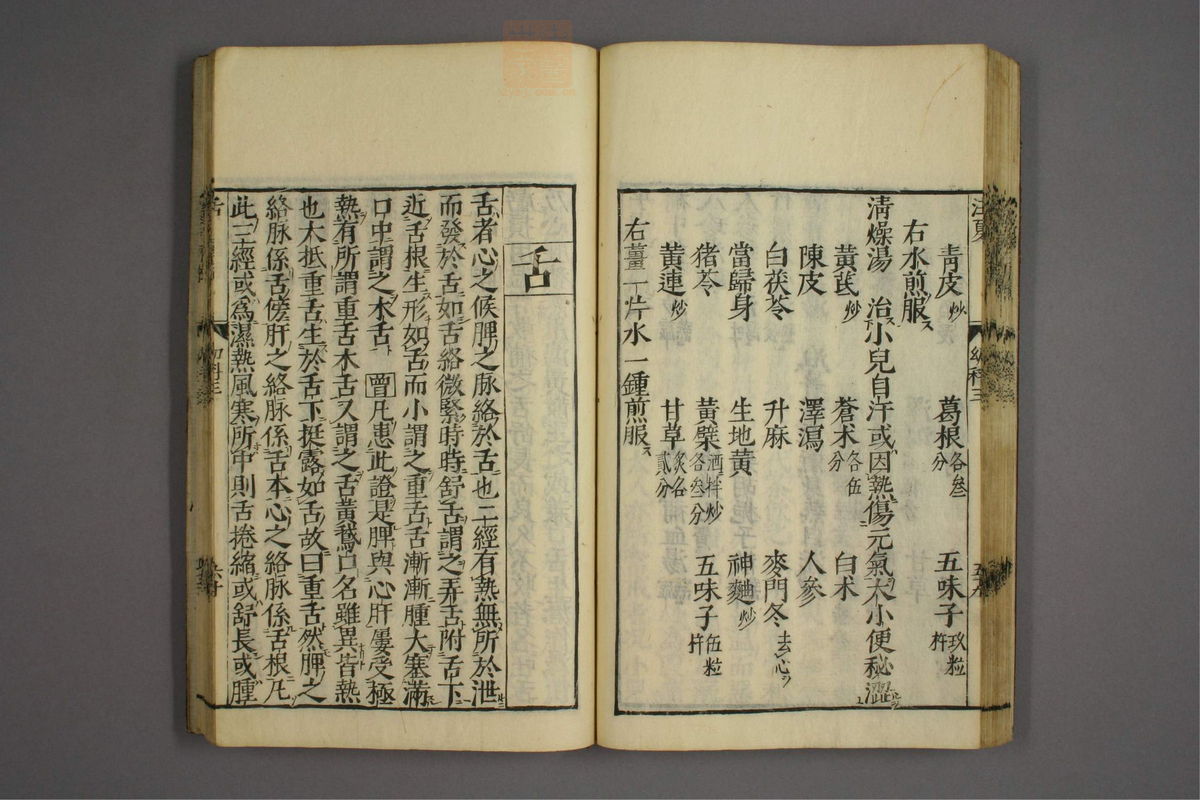 青皮炒　葛根各叁分　五味子玖粒杵
右水煎服
清燥湯　治小兒自汗或因熱傷元氣大小便秘澀
黃芪炒　蒼术各伍分　白术
陳皮　澤瀉　人參
白茯苓　升麻　麥門冬去心
當歸身　生地黃　神麯炒
猪苓　黃蘗酒拌炒各叁分　五味子伍粒杵
黃連炒　甘草炙各貳分
右薑一片水一鍾煎服
舌
舌者心之候脾之脉絡於舌也二經有熱無所於泄
而發於舌如舌絡微緊時時舒舌謂之弄舌附舌下
近舌根生形如舌而小謂之重舌舌漸漸腫大塞滿
口中謂之木舌　曽凡患此證是脾與心肝屢受極
熱有所謂重舌木舌又謂之舌黃鵞口名雖異皆熱
也大抵重舌生於舌下挺露如舌故曰重舌然脾之
絡脉係舌傍肝之絡脉係舌本心之絡脉係舌根凡
此三經或爲濕熱風寒所中則舌捲縮或舒長或腫
舌
幼科三